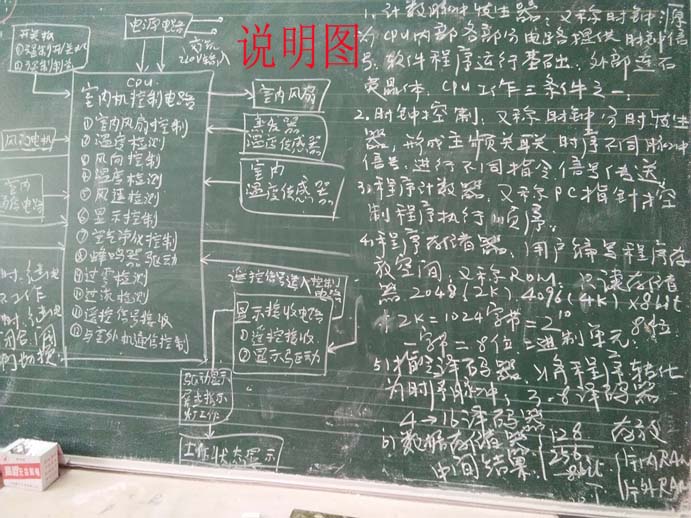 说明图
开关板
电源电路
交流
220V输入
CPU
室内机控制电路
①室内风扇控制
②温度检测
③风向控制
④湿度检测
⑤风速检测
⑥显示控制
⑦空气净化控制
⑧蜂鸣器驱动
⑨过零检测
⑩过流检测
⑪遥控信号接收
⑫与室外机通信控制
室内风扇
蒸发器
温度传感器
室内
温度传感器
风向电机
室内
遥控信号进入控制
电路
显示接收电路
①遥控接收
②显示驱动
驱动显示
灯工作
工作状态显示
1. 计数脉冲发生器：又称时钟源
为CPU内部各部分电路提供时钟信
号。软件程序运行基础。外部连石
英晶体。CPU工作三条件之一。
2. 时钟控制，又称时钟分时发生
器，形成主频关联时序不同脉冲
信号，进行不同指令信号传送
3. 程序计数器，又称PC指针控
制程序执行顺序。
4. 程序存储器：用户编写程序存
放空间，又称ROM，只读存储
器 2048(2K)、4096(4K)×8bit
2K=1024字节=2¹⁰ 8位
一字节=8位二进制单元。
5. 指令译码器：将程序转化
为时序脉冲，3-8译码器
4→16译码器
6. 数据存储器 128 存放
中间结果 256 片内RAM
8bit 片外RAM